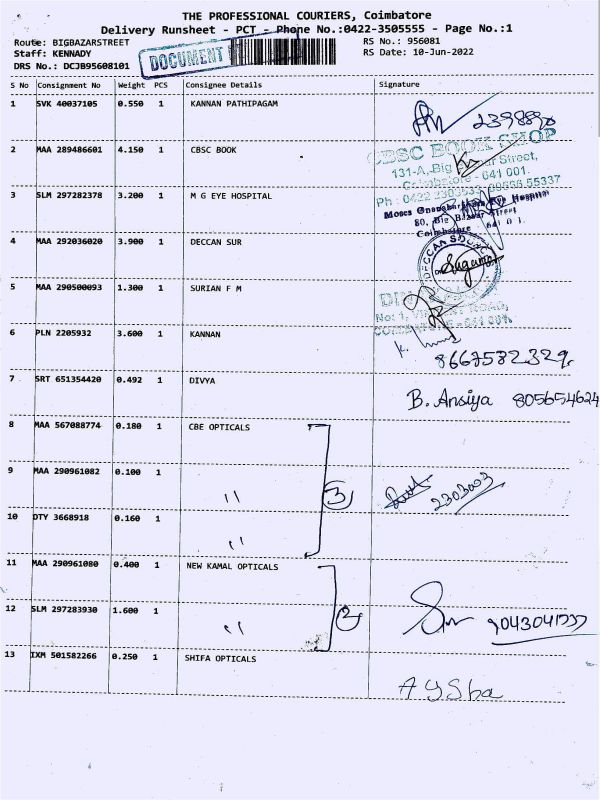 THE PROFESSIONAL COURIERS, Coimbatore
Delivery Runsheet - PCT - Phone No.:0422-3505555 - Page No.:1
Route: BIGBAZARSTREET
RS No.: 956081
Staff: KENNADY
DOCUMENT
RS Date: 10-Jun-2022
DRS No.: DCJB95608101
S No Consignment No Weight PCS Consignee Details Signature
1 SVK 40037105 0.550 1 KANNAN PATHIPAGAM
2398898
2 MAA 289486601 4.150 1 CBSC BOOK
CBSC BOOK SHOP
131-A, Big Bazaar Street,
Coimbatore - 641 001.
3 SLM 297282378 3.200 1 M G EYE HOSPITAL
Eye Hospital
80, Big Bazaar Street
Coimbatore
4 MAA 292036020 3.900 1 DECCAN SUR
DECCAN
5 MAA 290500093 1.300 1 SURIAN F M
6 PLN 2205932 3.600 1 KANNAN
8667582329
7 SRT 651354420 0.492 1 DIVYA
B. Ansiya 805654624
8 MAA 567088774 0.180 1 CBE OPTICALS
9 MAA 290961082 0.100 1 "
3
2303003
10 DTY 3668918 0.160 1 "
11 MAA 290961080 0.400 1 NEW KAMAL OPTICALS
12 SLM 297283930 1.600 1 "
2
13 IXM 501582266 0.250 1 SHIFA OPTICALS
AySha